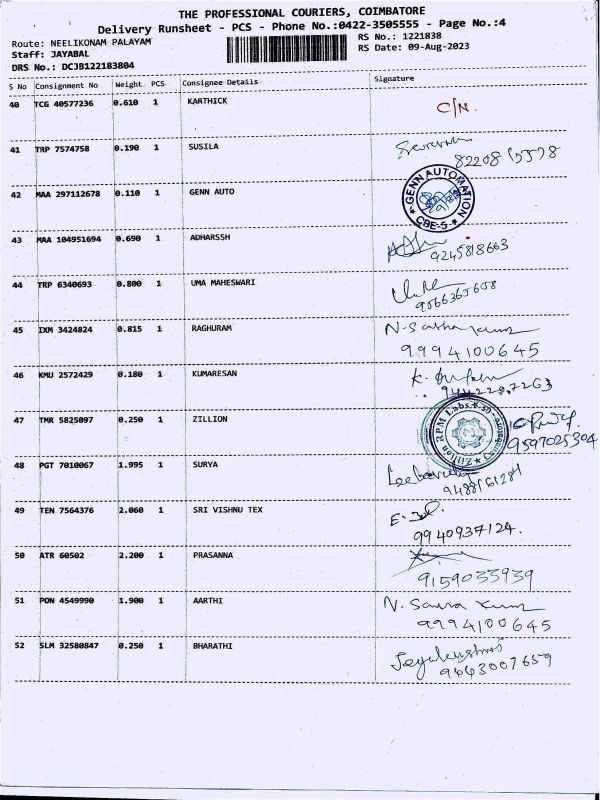 THE PROFESSIONAL COURIERS, COIMBATORE
Delivery Runsheet - PCS - Phone No.:0422-3505555 - Page No.:4
Route: NEELIKONAM PALAYAM RS No.: 1221838
Staff: JAYABAL RS Date: 09-Aug-2023
DRS No.: DCJB122183804
S No Consignment No Weight PCS Consignee Details Signature
40 TCG 40577236 0.610 1 KARTHICK C/N.
41 TRP 7574758 0.190 1 SUSILA
42 MAA 297112678 0.110 1 GENN AUTO GENN AUTOMATION CBE-5
43 MAA 104951694 0.690 1 ADHARSSH
9245818663
44 TRP 6340693 0.800 1 UMA MAHESWARI
9566365658
45 IXM 3424824 0.815 1 RAGHURAM
9994100645
46 KMU 2572429 0.180 1 KUMARESAN
47 TMR 5825097 0.250 1 ZILLION Zillion RPM Labs
9597025304
48 PGT 7010067 1.995 1 SURYA
49 TEN 7564376 2.060 1 SRI VISHNU TEX
9940937124.
50 ATR 60502 2.200 1 PRASANNA
9159033939
51 PON 4549990 1.900 1 AARTHI
9994100645
52 SLM 32580847 0.250 1 BHARATHI
9443007659